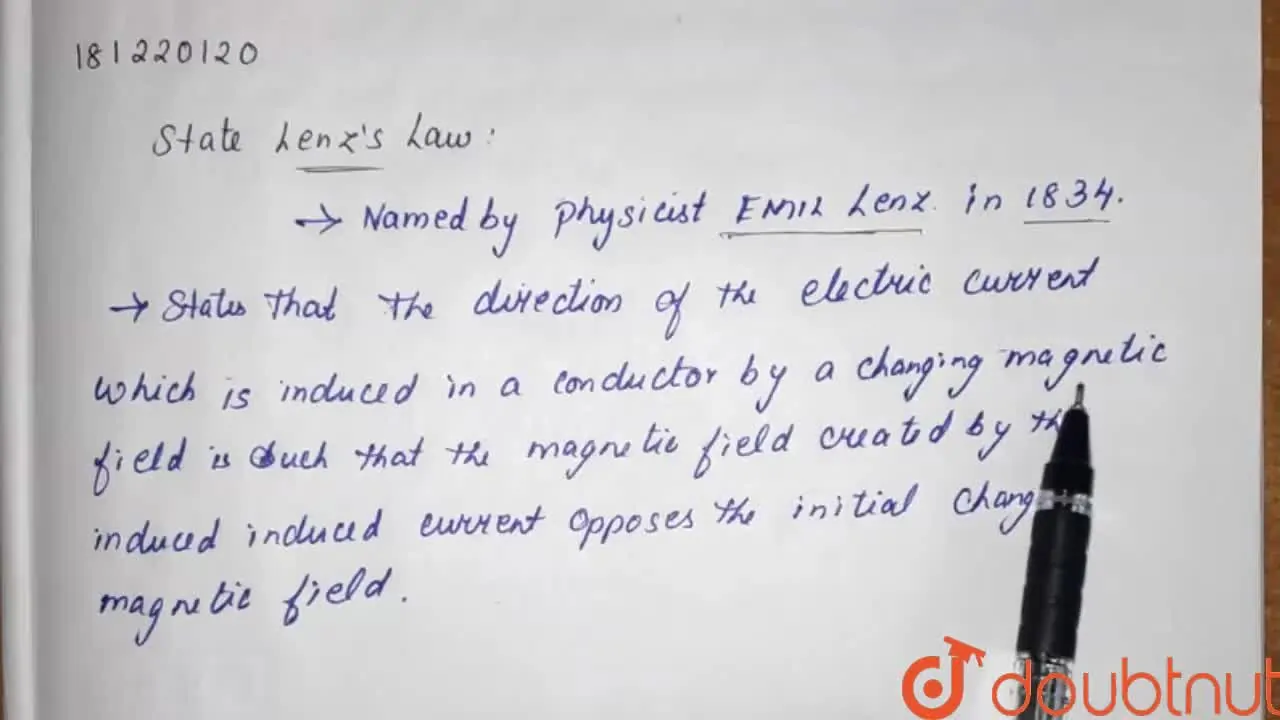 181220120
State Lenz's Law:
→ Named by physicist EMIL Lenz. in 1834.
→ States that the direction of the electric current
which is induced in a conductor by a changing magnetic
field is such that the magnetic field created by th
induced induced current opposes the initial chang
magnetic field.
doubtnut